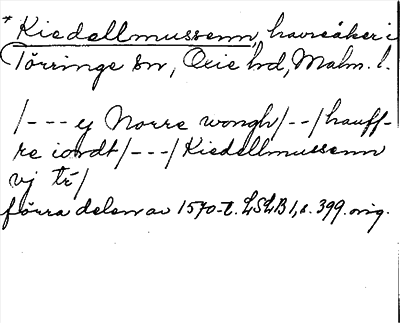 * Kiedellmussenn, havreåker i
Törringe sn, Oxie hd, Malm. l.
/--- ej Norre wongh/--/hauff-
re iordt/---/Kiedellmussenn
vj tr/
förra delen av 1570-t. LSLB 1, s. 399. orig.